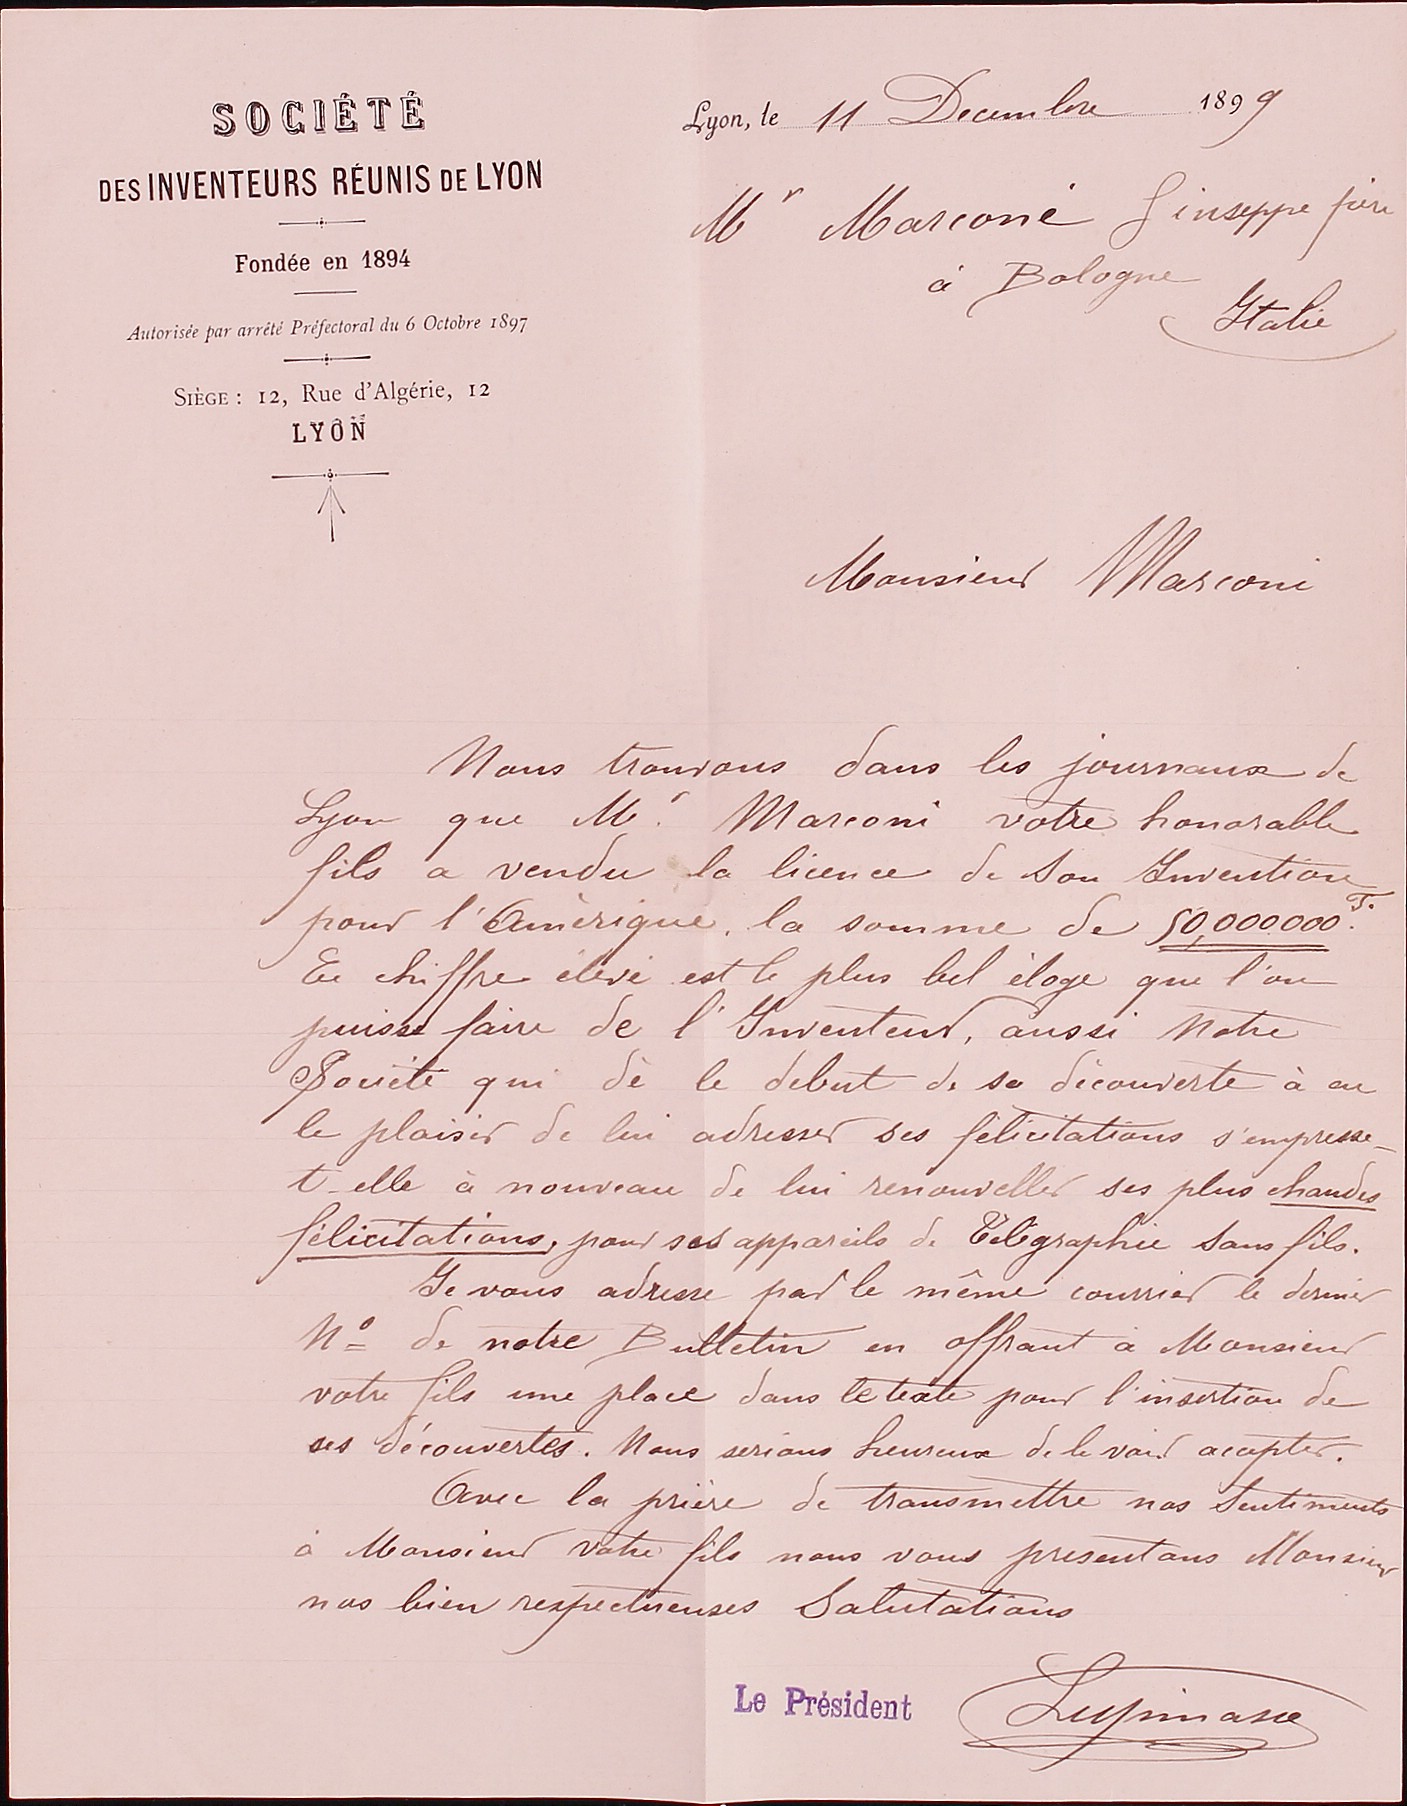 SOCIÉTÉ
DES INVENTEURS RÉUNIS DE LYON
Fondée en 1894
Autorisée par arrêté Préfectoral du 6 Octobre 1897
SIÈGE : 12, Rue d'Algérie, 12
LYON
Lyon, le 11 Decembre 1899
Mr Marconi Giuseppe père
à Bologne
Italie
Monsieur Marconi
Nous trouvons dans les journaux de
Lyon que Mr. Marconi votre honorable
fils a vendu la licence de Son Invention
pour l'Amèrique, la somme de 50,000000 F.
Ce chiffre élevé est le plus bel éloge que l'on
puisse faire de l'Inventeur, aussi Notre
Société qui dè le debut de sa découverte à eu
le plaisir de lui adresser ses félicitations s'empresse-
t-elle à nouveau de lui renouveller ses plus chaudes
félicitations, pour ses appareils de Télégraphie Sans fils.
Je vous adresse par le même courrier le dernier
No de notre Bulletin en offrant à Monsieur
votre fils une place dans le texte pour l'insertion de
ses découvertes. Nous serions heureux de le voir accepter.
Avec la prière de transmettre nos Sentiments
à Monsieur votre fils nous vous presentons Monsieur
nos bien respectueuses Salutations
Le Président